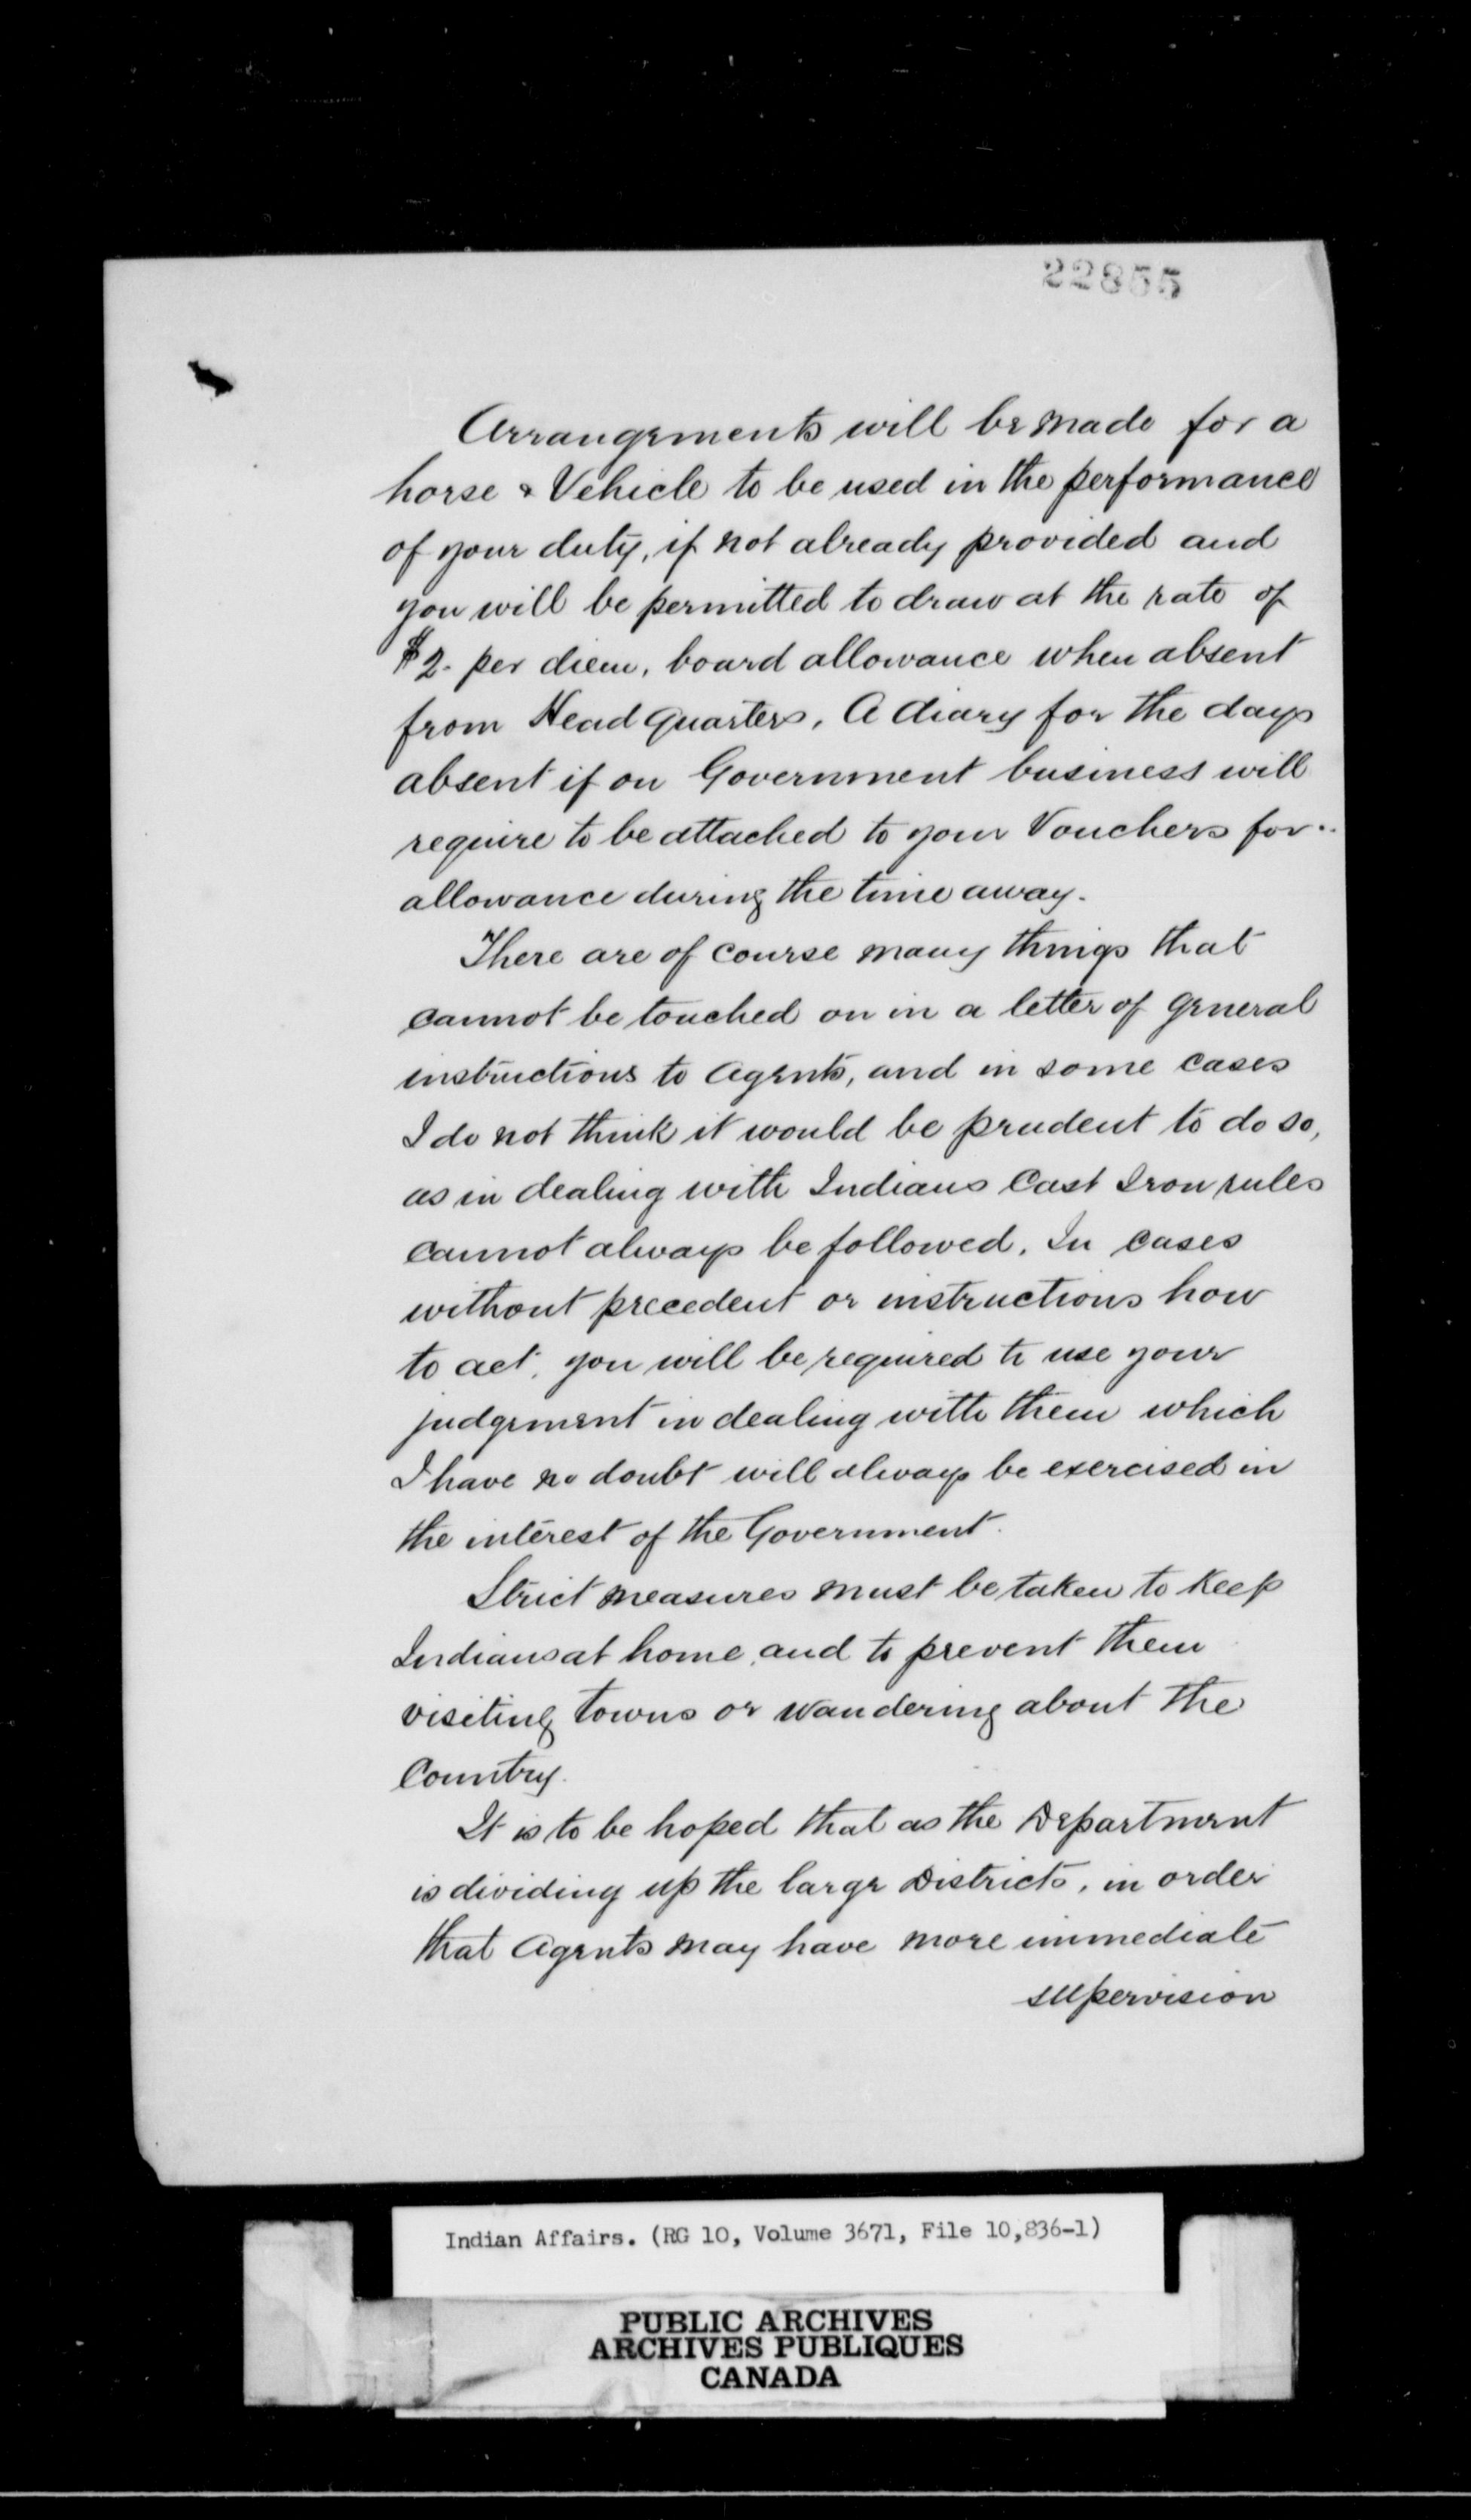 22855
Arrangements will be made for a
horse & Vehicle to be used in the performance
of your duty, if not already provided and
you will be permitted to draw at the rate of
$2. per diem, board allowance when absent
from Head Quarters. A diary for the days
absent if on Government business will
require to be attached to your Vouchers for
allowance during the time away.
There are of course many things that
cannot be touched on in a letter of general
instructions to Agents, and in some cases
I do not think it would be prudent to do so,
as in dealing with Indians Cast Iron rules
cannot always be followed. In cases
without precedent or instructions how
to act, you will be required to use your
judgement in dealing with them which
I have no doubt will always be exercised in
the interest of the Government.
Strict measures must be taken to keep
Indians at home, and to prevent them
visiting towns or wandering about the
Country.
It is to be hoped that as the Department
is dividing up the large Districts, in order
that Agents may have more immediate
supervision
Indian Affairs. (RG 10, Volume 3671, File 10,836-1)
PUBLIC ARCHIVES
ARCHIVES PUBLIQUES
CANADA